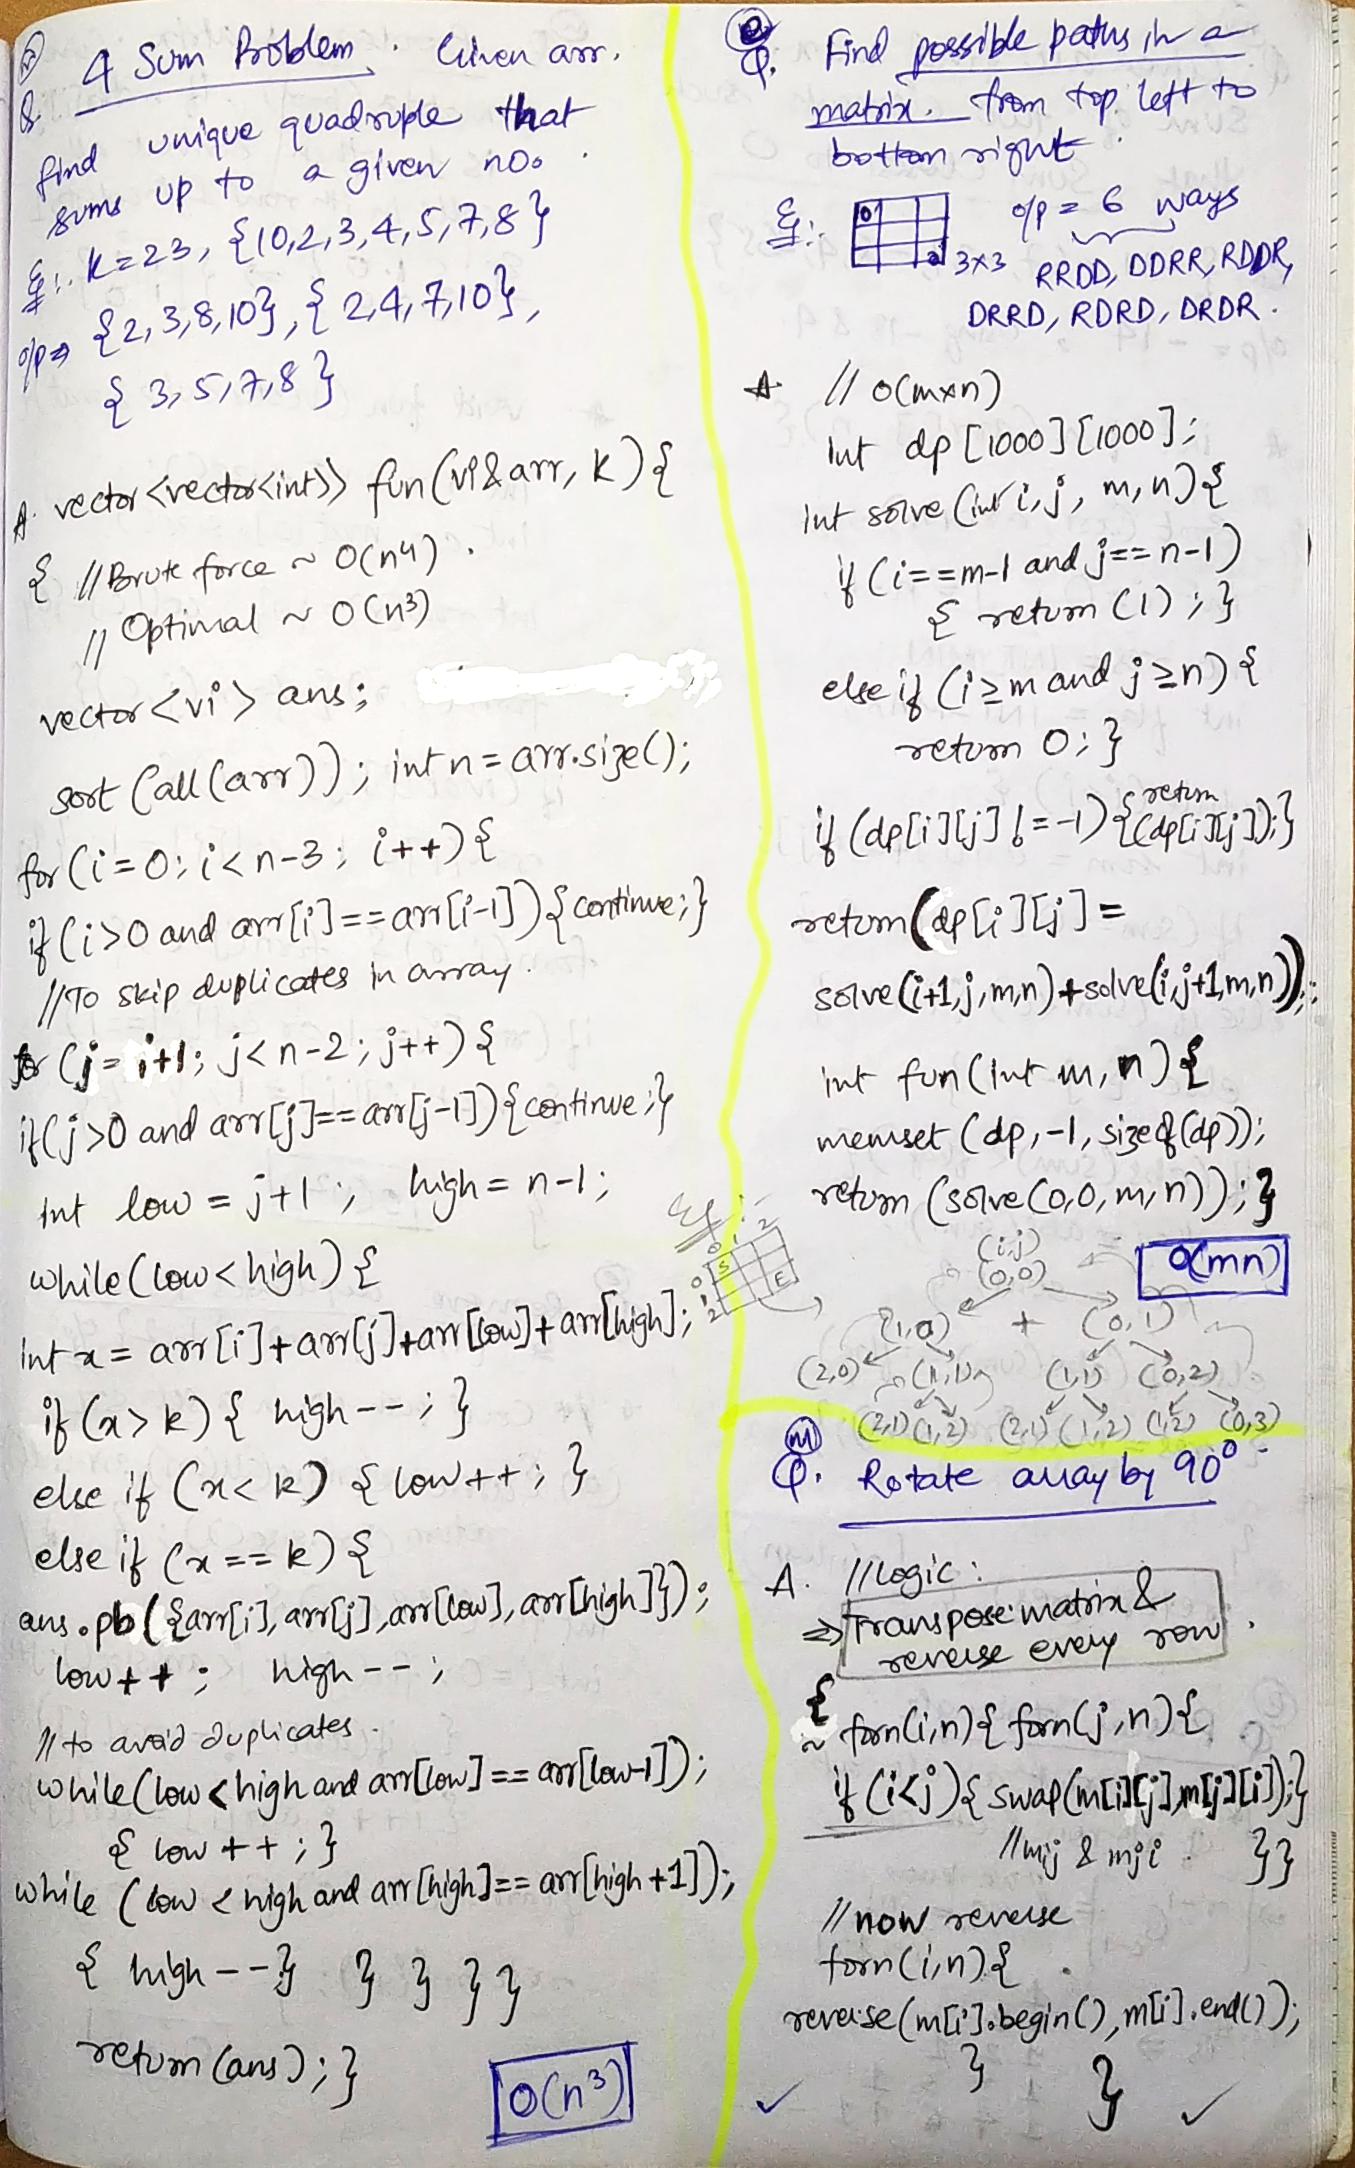 (M)
Q. 4 Sum Problem. Given arr.
find unique quadruple that
sums up to a given no.
Eg:. K=23, {10,2,3,4,5,7,8}
o/p⇒ {2,3,8,10}, {2,4,7,10},
{3,5,7,8}
A. vector<vector<int>> fun(vi&arr, k){
{ //Brute force ~ O(n4).
// Optimal ~ O(n3)
vector<vi> ans;
sort(all(arr)); int n=arr.size();
for(i=0; i<n-3; i++){
if(i>0 and arr[i]==arr[i-1]){continue;}
//To skip duplicates in array.
for (j=i+1; j<n-2; j++){
if(j>0 and arr[j]==arr[j-1]){continue;}
int low=j+1; high=n-1;
while(low<high){
int x= arr[i]+arr[j]+arr[low]+arr[high];
if(x>k){ high--; }
else if (x<k) { low++; }
else if (x==k){
ans.pb({arr[i],arr[j],arr[low],arr[high]});
low++; high--;
// to avoid duplicates.
while(low<high and arr[low]==arr[low-1]);
{ low++;}
while (low<high and arr[high]==arr[high+1]);
{ high--} } } } }
return(ans);}
O(n3)
(e)
Q. Find possible paths in a
matrix. from top left to
bottom right.
Eg:. 3x3 o/p = 6 ways
RRDD, DDRR, RDDR,
DRRD, RDRD, DRDR.
A // O(mxn)
Int dp[1000][1000];
int solve(int i,j, m,n){
if(i==m-1 and j==n-1)
{ return(1); }
else if (i≥m and j≥n){
return 0;}
if(dp[i][j]!=-1){return(dp[i][j]);}
return(dp[i][j]=
solve(i+1,j,m,n)+solve(i,j+1,m,n));
int fun(int m,n){
memset(dp,-1,sizeof(dp));
return (solve(0,0,m,n));}
O(mn)
Eg:.
0 1 2
0 S
1 E
2
(i,j)
(0,0)
(1,0) + (0,1)
(2,0) (1,1) (1,1) (0,2)
(2,1) (1,2) (2,1) (1,2) (1,2) (0,3)
(M)
Q. Rotate array by 90°
A. //Logic:
⇒ Transpose matrix &
reverse every row.
{
~ forn(i,n){ forn(j,n){
if(i<j){ swap(m[i][j],m[j][i]);}
//mij & mji }}
//now reverse
forn(i,n){
reverse(m[i].begin(),m[i].end());
} }